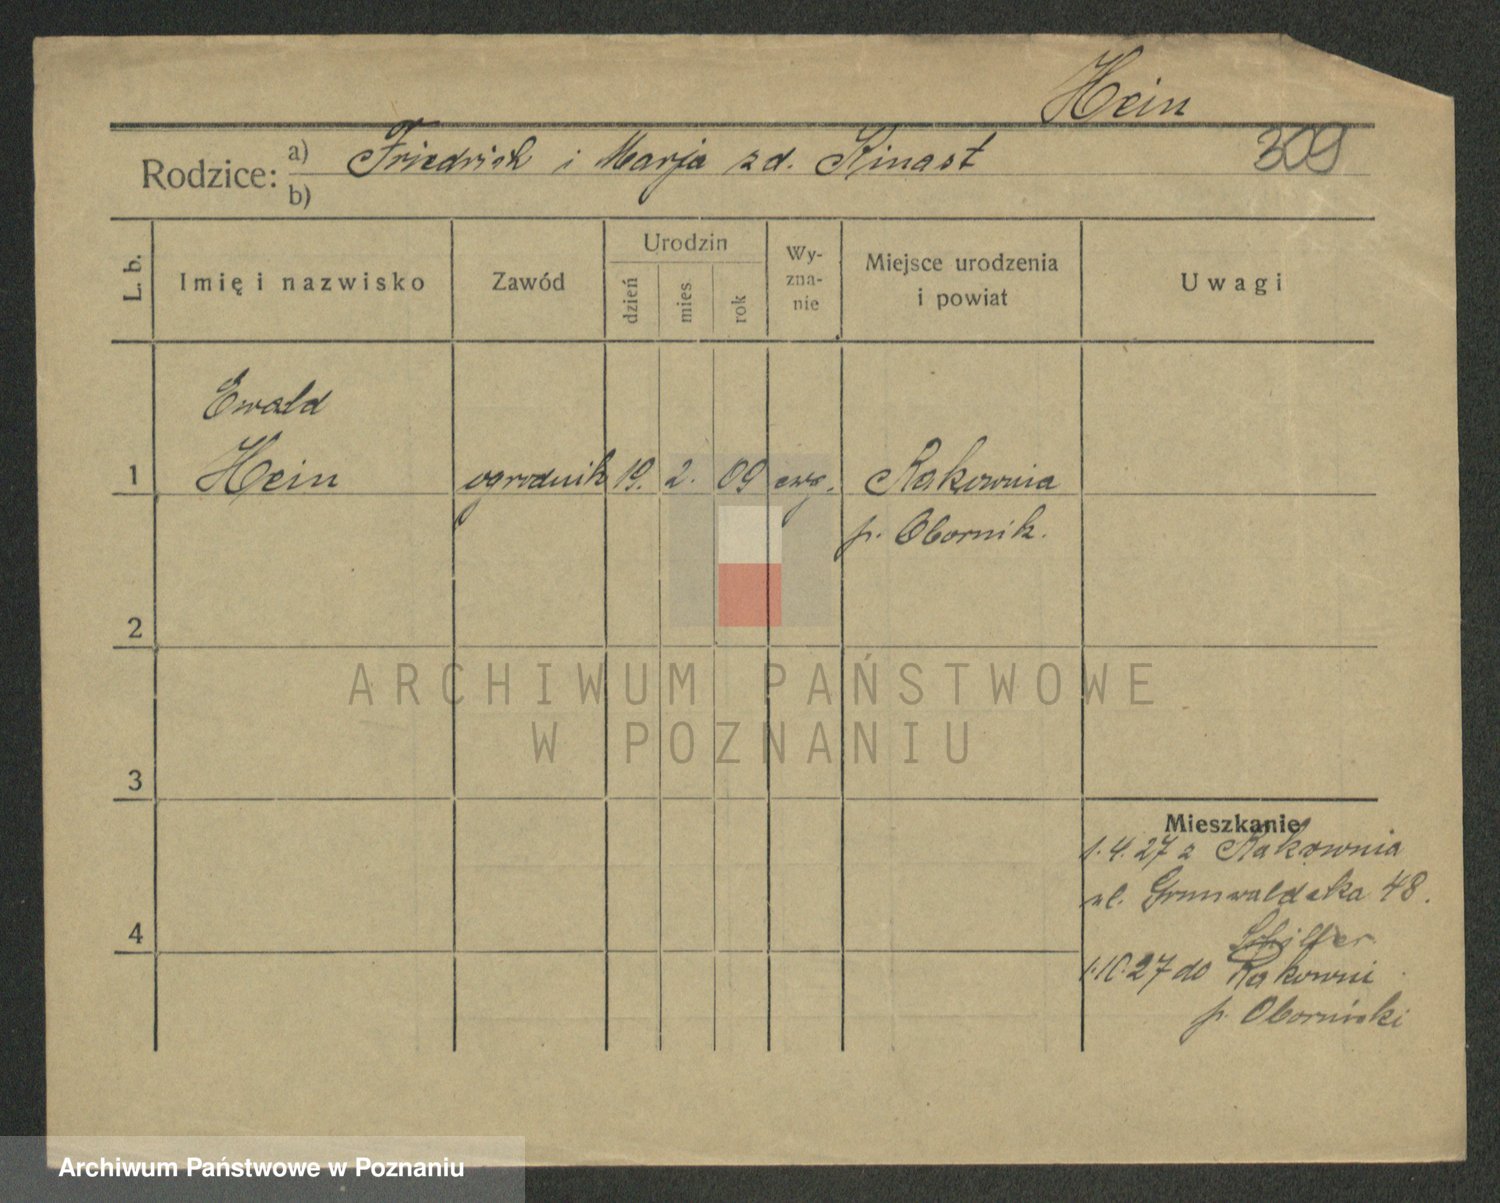 Hein
309
Rodzice: a) Friedrich i Marja zd. Kinast
b)
L. b.
Imię i nazwisko
Zawód
Urodzin
dzień
mies
rok
Wy-
zna-
nie
Miejsce urodzenia
i powiat
Uwagi
Ewald
1 Hein ogrodnik 19. 2. 09 ewg. Rakownia
p. Obornik.
2
ARCHIWUM PAŃSTWOWE
W POZNANIU
3
Mieszkanie
1.4.27 z Rakownia
ul. Grunwaldska 48.
4
1.10.27 do Rakowni
p. Obornicki
Archiwum Państwowe w Poznaniu